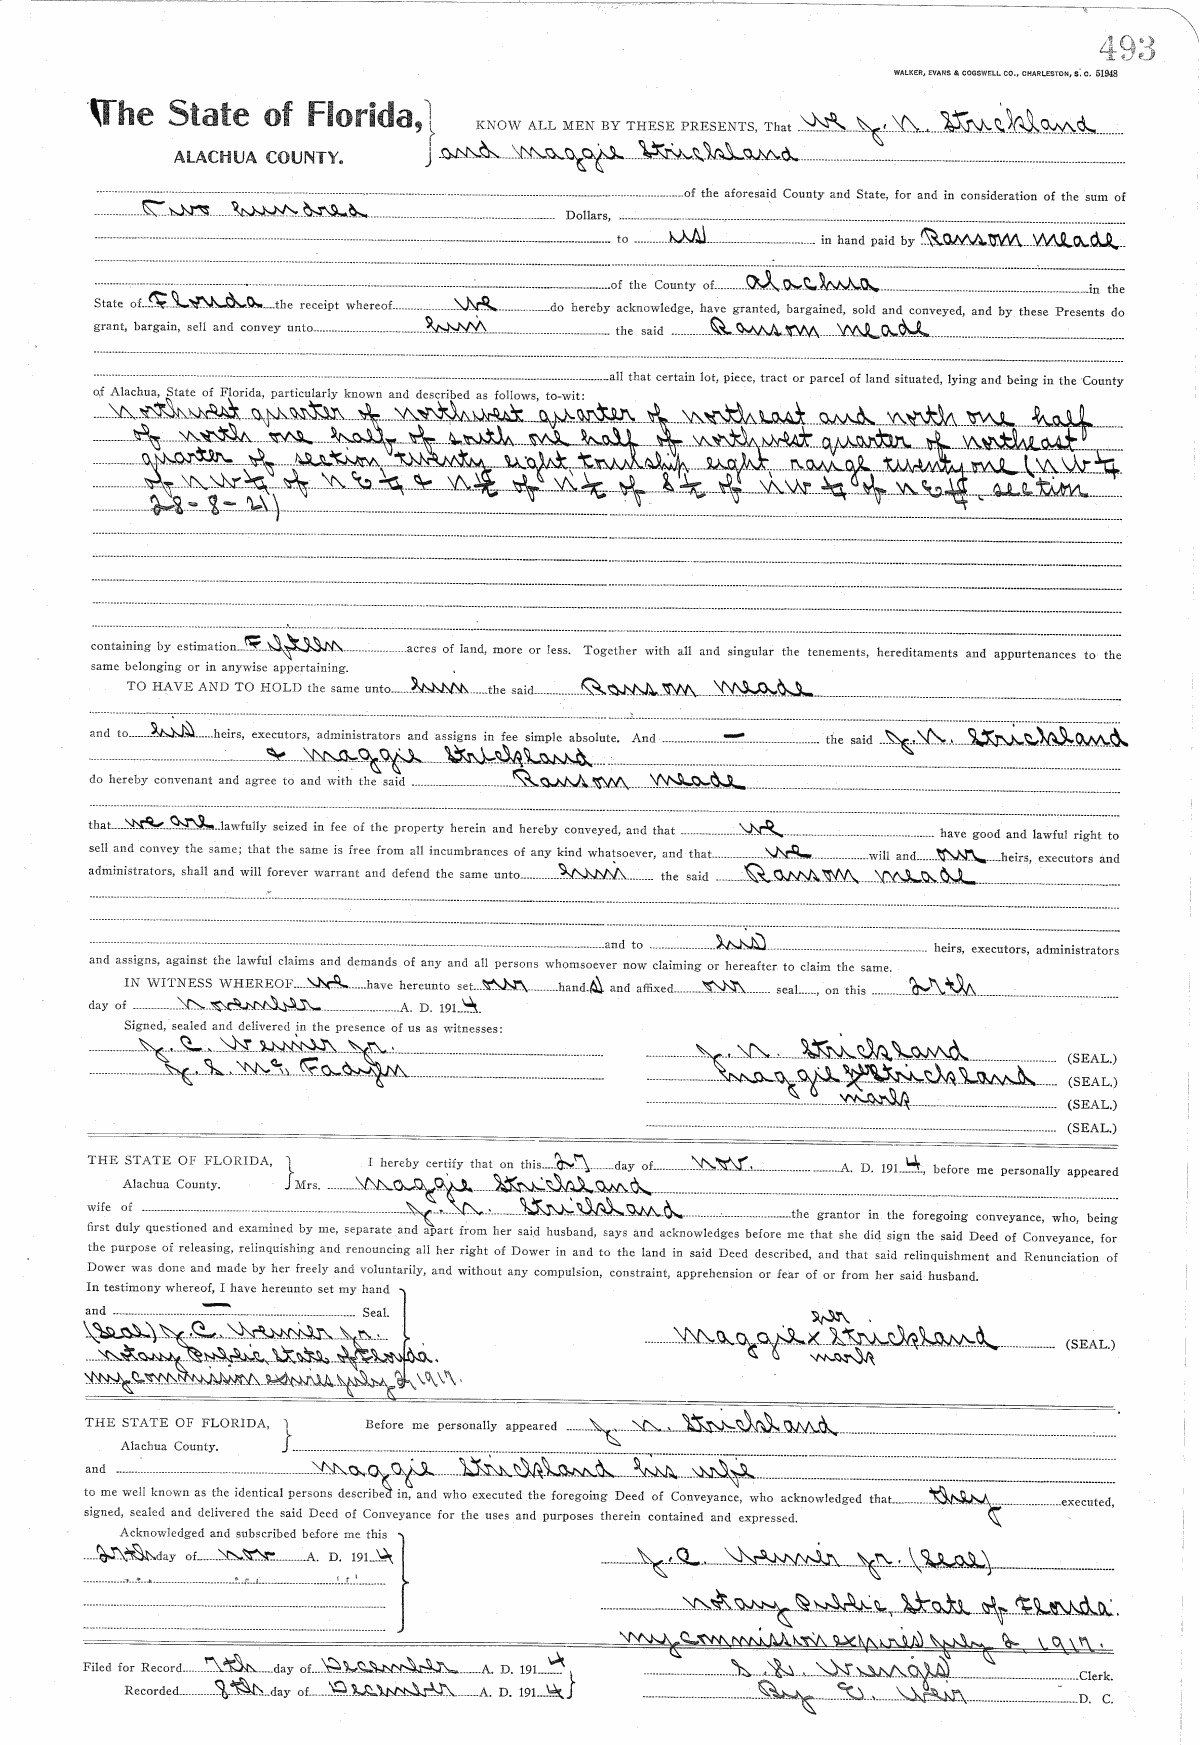 493
WALKER, EVANS & COGSWELL CO., CHARLESTON, S. C. 51948
The State of Florida, KNOW ALL MEN BY THESE PRESENTS, That we J. N. Strickland
ALACHUA COUNTY. and Maggie Strickland
of the aforesaid County and State, for and in consideration of the sum of
Two hundred Dollars,
to us in hand paid by Ransom Meade
of the County of Alachua in the
State of Florida the receipt whereof we do hereby acknowledge, have granted, bargained, sold and conveyed, and by these Presents do
grant, bargain, sell and convey unto him the said Ransom Meade
all that certain lot, piece, tract or parcel of land situated, lying and being in the County
of Alachua, State of Florida, particularly known and described as follows, to-wit:
Northwest quarter of northwest quarter of northeast and north one half
of north one half of south one half of northwest quarter of northeast
quarter of section twenty eight township eight range twenty one (NW¼
of NW¼ of NE¼ & N½ of N½ of S½ of NW¼ of NE¼ section
28-8-21)
containing by estimation Fifteen acres of land, more or less. Together with all and singular the tenements, hereditaments and appurtenances to the
same belonging or in anywise appertaining.
TO HAVE AND TO HOLD the same unto him the said Ransom Meade
and to his heirs, executors, administrators and assigns in fee simple absolute. And — the said J. N. Strickland
& Maggie Strickland
do hereby convenant and agree to and with the said Ransom Meade
that we are lawfully seized in fee of the property herein and hereby conveyed, and that we have good and lawful right to
sell and convey the same; that the same is free from all incumbrances of any kind whatsoever, and that we will and our heirs, executors and
administrators, shall and will forever warrant and defend the same unto him the said Ransom Meade
and to his heirs, executors, administrators
and assigns, against the lawful claims and demands of any and all persons whomsoever now claiming or hereafter to claim the same.
IN WITNESS WHEREOF we have hereunto set our hands and affixed our seal, on this 27th
day of November A. D. 1914.
Signed, sealed and delivered in the presence of us as witnesses:
J. C. Weimer Jr. J. N. Strickland (SEAL.)
J. S. McFadyen Maggie her x Strickland (SEAL.)
mark (SEAL.)
(SEAL.)
THE STATE OF FLORIDA, I hereby certify that on this 27 day of Nov. A. D. 1914, before me personally appeared
Alachua County. Mrs. Maggie Strickland
wife of J. N. Strickland the grantor in the foregoing conveyance, who, being
first duly questioned and examined by me, separate and apart from her said husband, says and acknowledges before me that she did sign the said Deed of Conveyance, for
the purpose of releasing, relinquishing and renouncing all her right of Dower in and to the land in said Deed described, and that said relinquishment and Renunciation of
Dower was done and made by her freely and voluntarily, and without any compulsion, constraint, apprehension or fear of or from her said husband.
In testimony whereof, I have hereunto set my hand
and — Seal. her
(Seal) J. C. Weimer Jr. Maggie x Strickland (SEAL)
Notary Public, State of Florida. mark
My commission expires July 2, 1917.
THE STATE OF FLORIDA, Before me personally appeared J. N. Strickland
Alachua County.
and Maggie Strickland his wife
to me well known as the identical persons described in, and who executed the foregoing Deed of Conveyance, who acknowledged that they executed,
signed, sealed and delivered the said Deed of Conveyance for the uses and purposes therein contained and expressed.
Acknowledged and subscribed before me this
27th day of Nov A. D. 1914 J. C. Weimer Jr. (Seal)
Notary Public, State of Florida.
My commission expires July 2, 1917.
Filed for Record 7th day of December A. D. 1914 S. H. Wienges Clerk.
Recorded 8th day of December A. D. 1914 By E. Weir D. C.